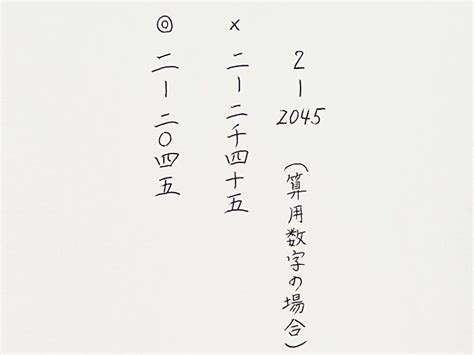 2ー2045（算用数字の場合）
× 二ー二千四十五
◎ 二ー二〇四五